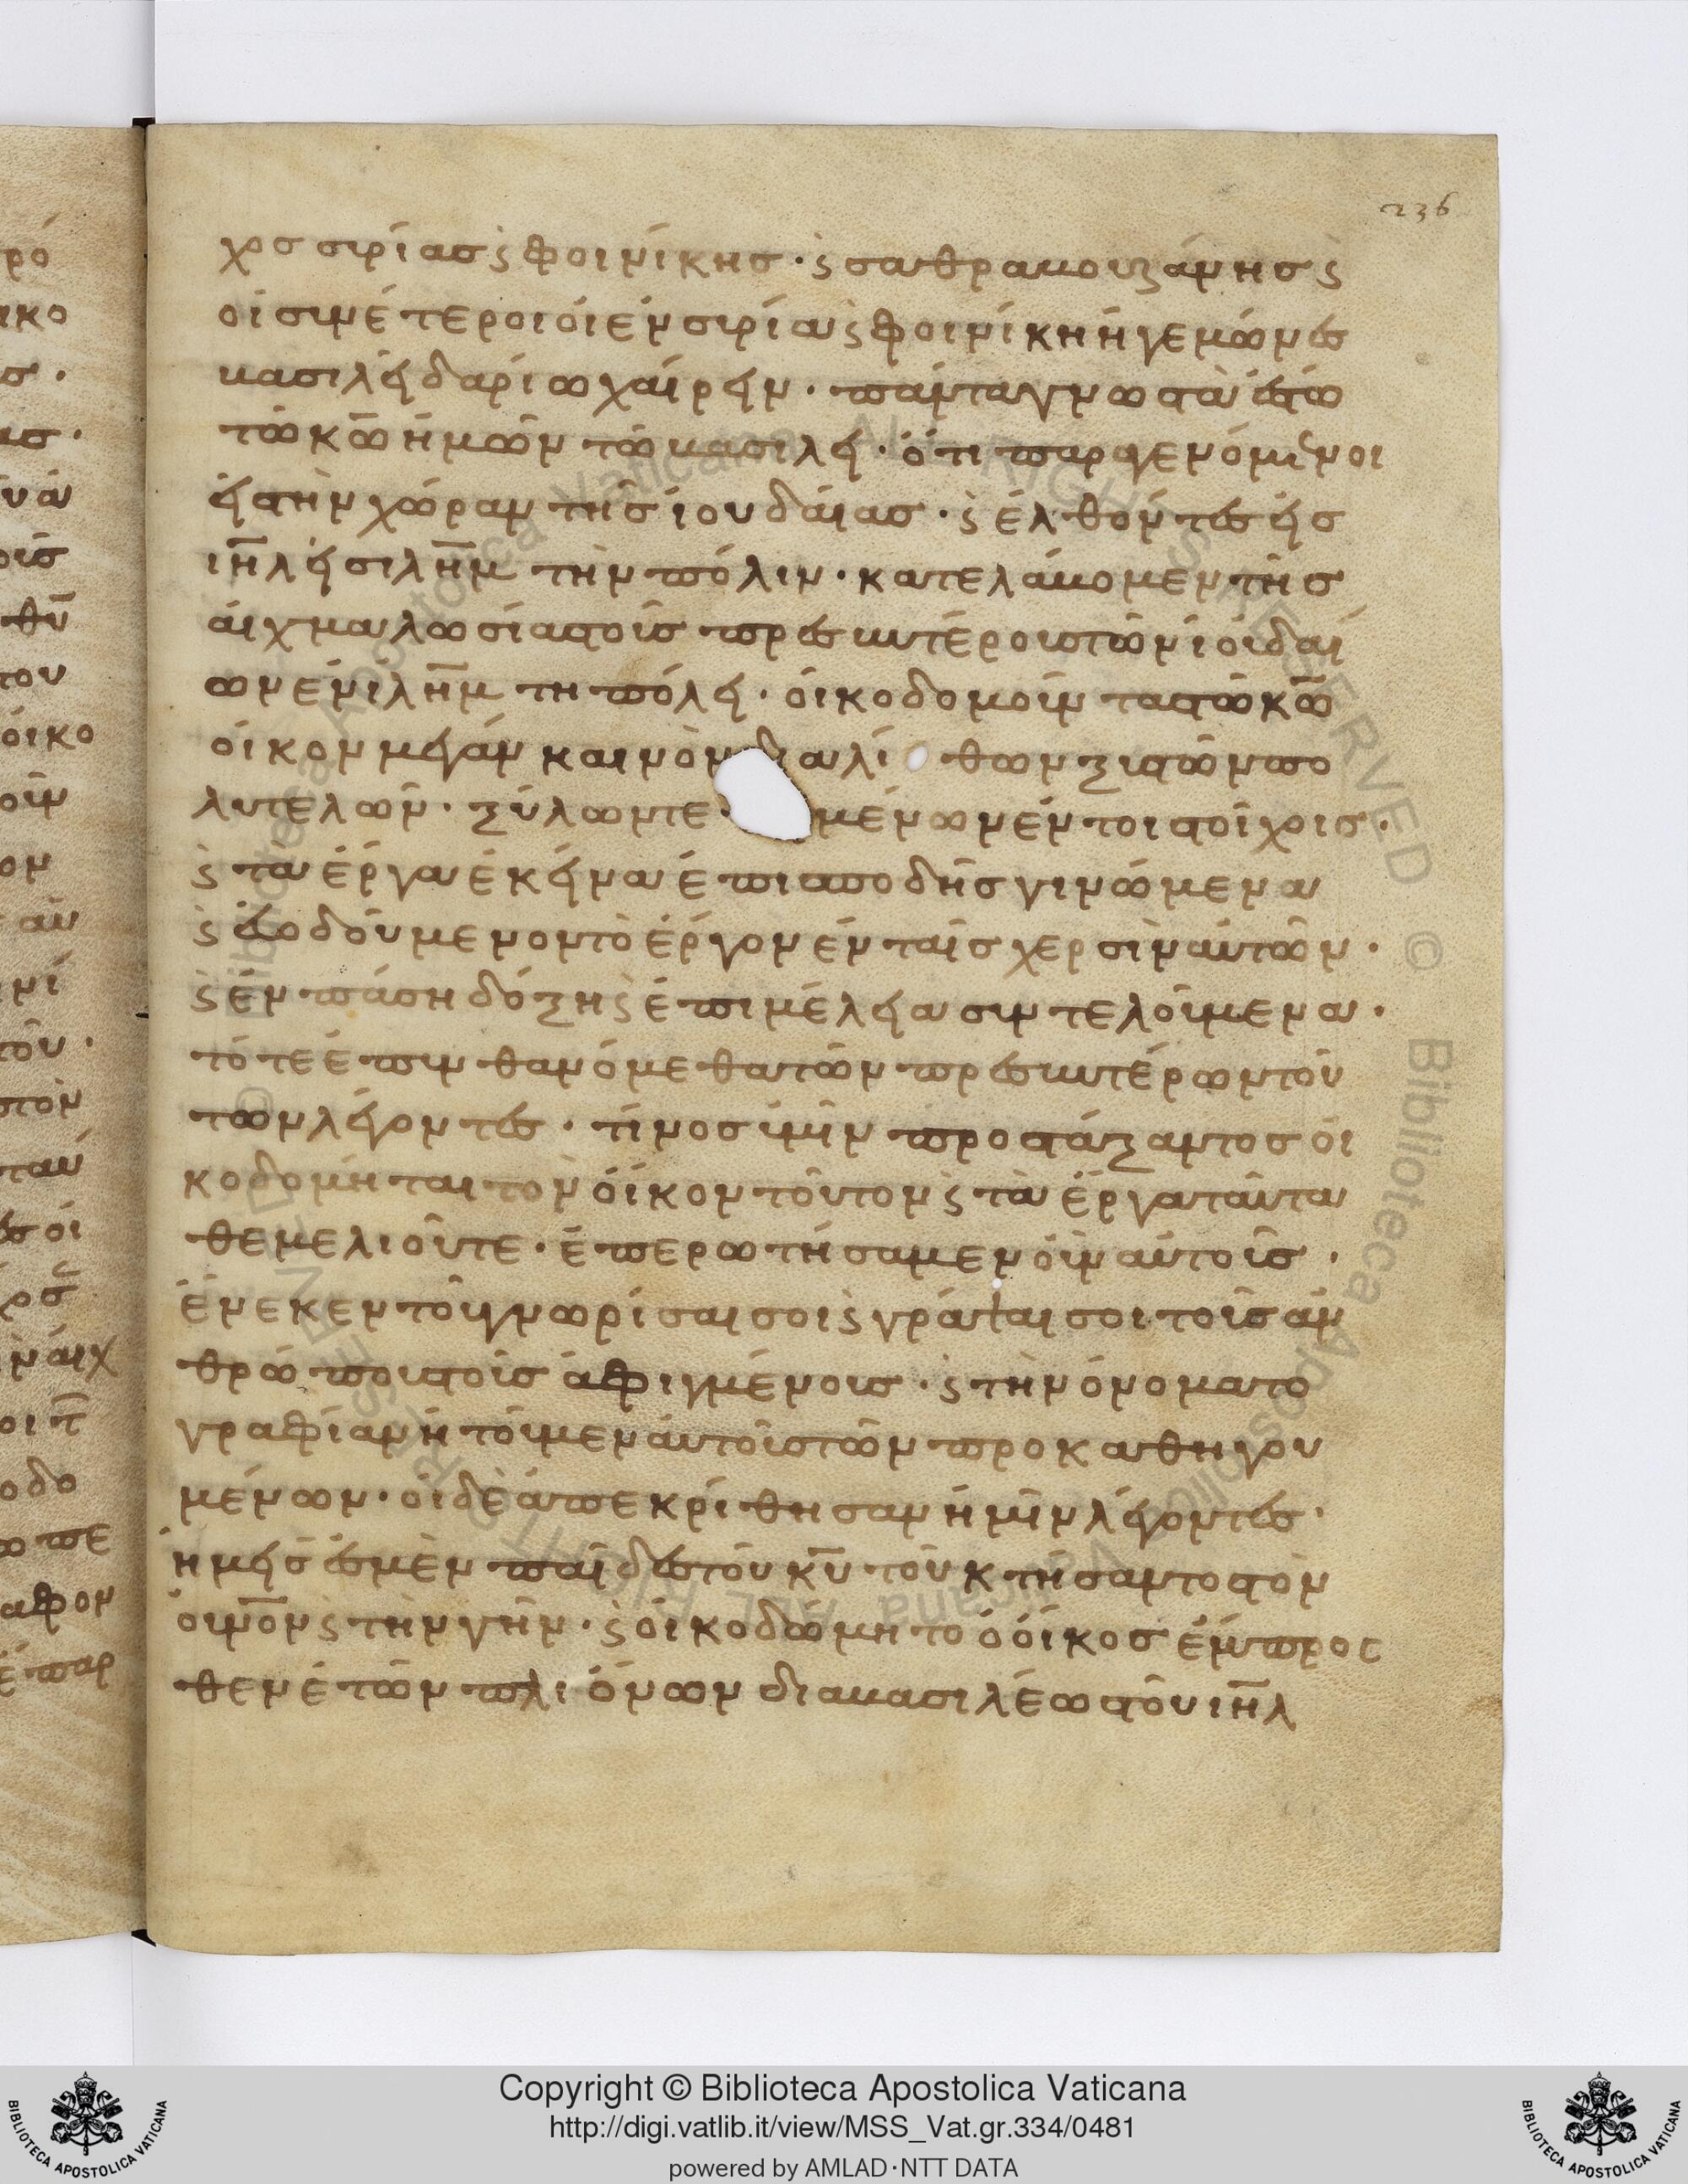 236
χοσ συρίασ ϛ φοινίκησ · ϛ σαθραβουζάνησ ϛ
οἱ συνέτεροι ὁι ἐν συρία ϛ φοινίκη ἡγεμώνεσ
βασιλεῖ δαρίω χαίρειν · πάντα γνωστὰ ἔστω
τῶ κ̅ω̅ ἡμῶν τῶ βασιλεῖ · ὅτι παραγενόμενοι
εἰς τὴν χώραν τῆσ ἰουδαίασ · ϛ ἐλθόντεσ εἰσ
ι̅η̅λ εἰσ ιλ̅η̅μ τὴν πόλιν · κατελάβομεν τῆσ
αἰχμαλωσίασ τοῖσ πρεσβυτέροισ τῶν ἰοιδαί
ων ἐν ἰλ̅η̅μ τη πόλει · οἰκοδομοῦν τασ τῶ κ̅ω̅
οἶκον μέγαν καινὸν διαλί θων ξυστῶν πο
λυτελῶν · ξύλων τε · μένων ἐν τοισ τοῖχοισ ·
ϛ τὰ ἔργα ἐκεῖνα ἐπι σποδῆσ γινώμενα
ϛ εὐοδούμενον τὸ ἔργον ἐν ταῖσ χερσὶν αὐτῶν ·
ϛ ἐν πάση δόξη ϛ ἐπιμέλεια συντελούμενα ·
τότε ἐπυνθανόμεθα τῶν πρεσβυτέρων τού
των λέγοντεσ · τίνοσ ὑμῖν προστάξαντοσ οἰ
κοδομήται τὸν οἶκον τοῦτον ϛ τὰ ἔργα ταῦτα
θεμελιοῦτε · ἐπερωτήσαμεν οὖν αὐτοῖσ ·
ἕνεκεν τοῦ γνωρίσαι σοι ϛ γράψαι σοι τοῖσ ἀν
θρώποισ τοῖσ ἀφιγμένοισ · ϛ τὴν ὀνοματο
γραφίαν ἠτοῦμεν αὐτοῖσ τῶν προκαθηγου
μένων · οἱ δὲ ἀπεκρίθησαν ἡμῖν λέγοντεσ ·
ἡμεῖσ ἐσμὲν παῖδεσ τοῦ κ̅υ̅ τοῦ κτήσαντοσ τὸν
οὐν̅ον ϛ τὴν γῆν · ϛ οἰκοδώμητο ὁ οἶκοσ ἔμπροσ
θεν ἐτῶν πλιόνων δια βασιλέωσ τοῦ ι̅η̅λ
Copyright © Biblioteca Apostolica Vaticana
http://digi.vatlib.it/view/MSS_Vat.gr.334/0481
powered by AMLAD·NTT DATA